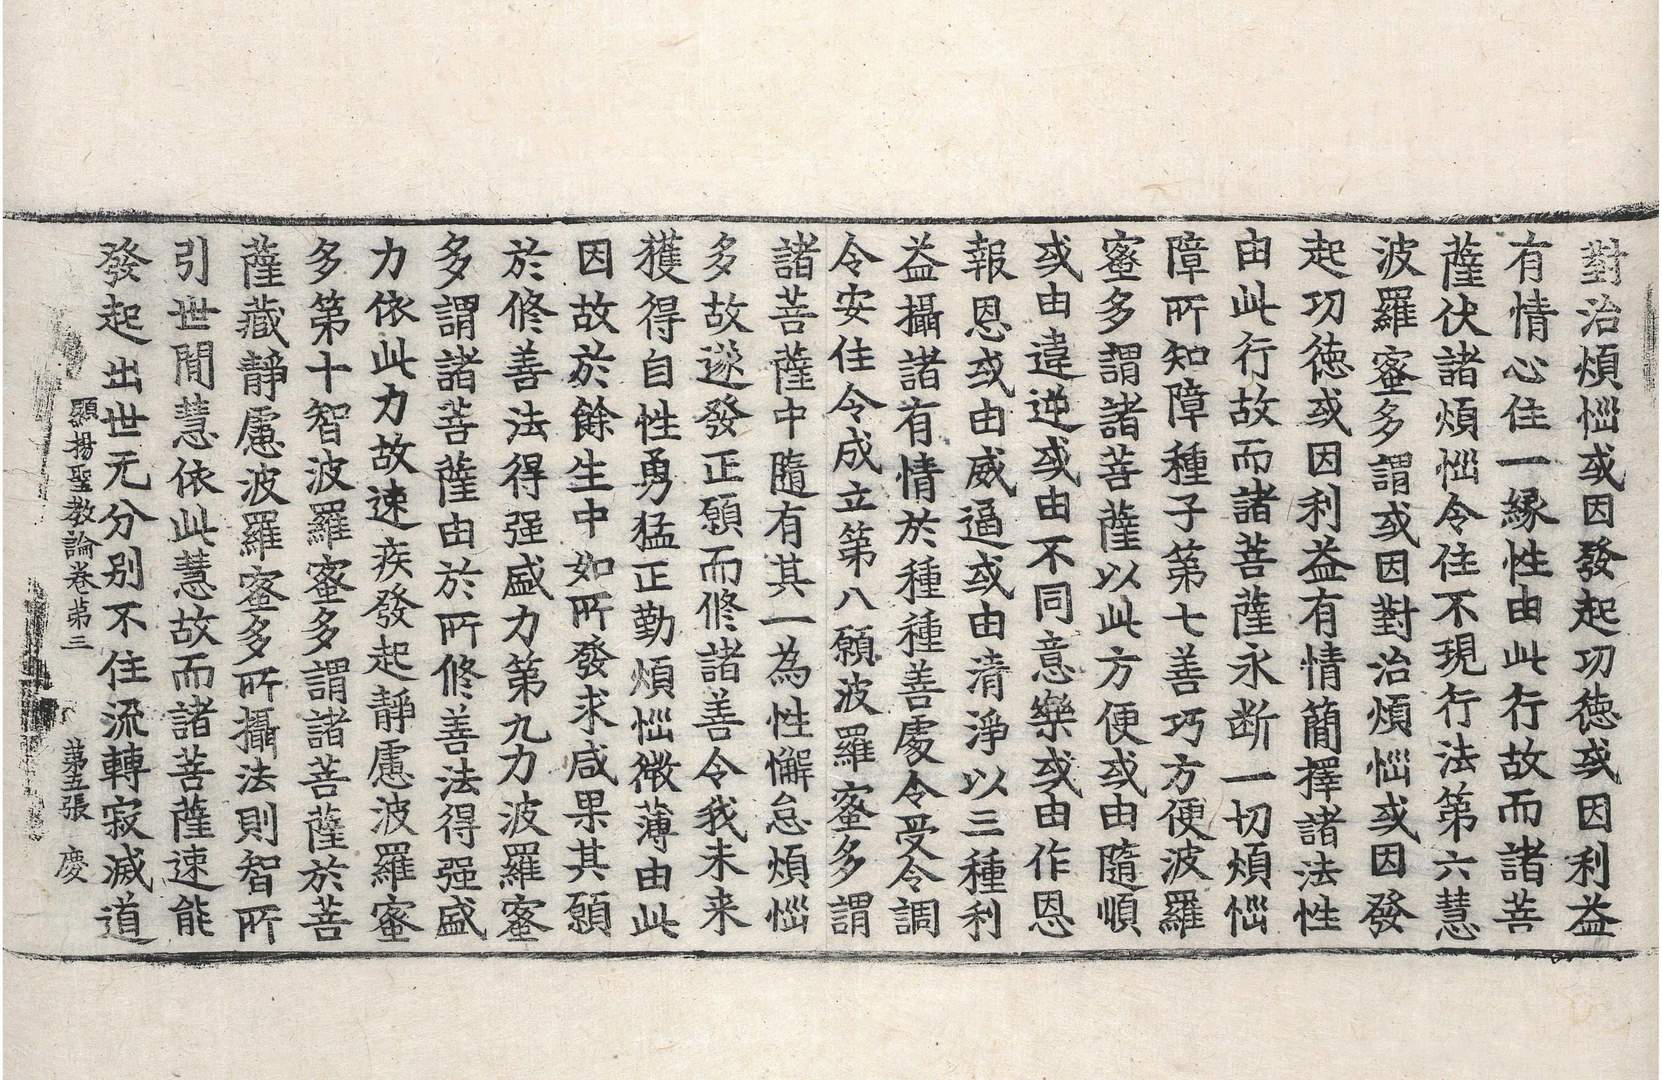 對治煩惱或因發起功徳或因利益
有情心住一縁性由此行故而諸菩
薩伏諸煩惱令住不現行法第六慧
波羅蜜多謂或因對治煩惱或因發
起功徳或因利益有情簡擇諸法性
由此行故而諸菩薩永断一切煩惱
障所知障種子第七善巧方便波羅
蜜多謂諸菩薩以此方便或由隨順
或由違逆或由不同意樂或由作恩
報恩或由威逼或由清淨以三種利
益攝諸有情於種種善處令受令調
令安住令成立第八願波羅蜜多謂
諸菩薩中隨有其一為性懈怠煩惱
多故遂發正願而修諸善令我未来
獲得自性勇猛正勤煩惱微薄由此
因故於餘生中如所發求咸果其願
於修善法得强盛力第九力波羅蜜
多謂諸菩薩由於所修善法得强盛
力依此力故速疾發起靜慮波羅蜜
多第十智波羅蜜多謂諸菩薩於菩
薩藏靜慮波羅蜜多所攝法則智所
引世間慧依此慧故而諸菩薩速能
發起出世无分别不住流轉寂滅道
顯揚聖教論卷第三 第五張 慶